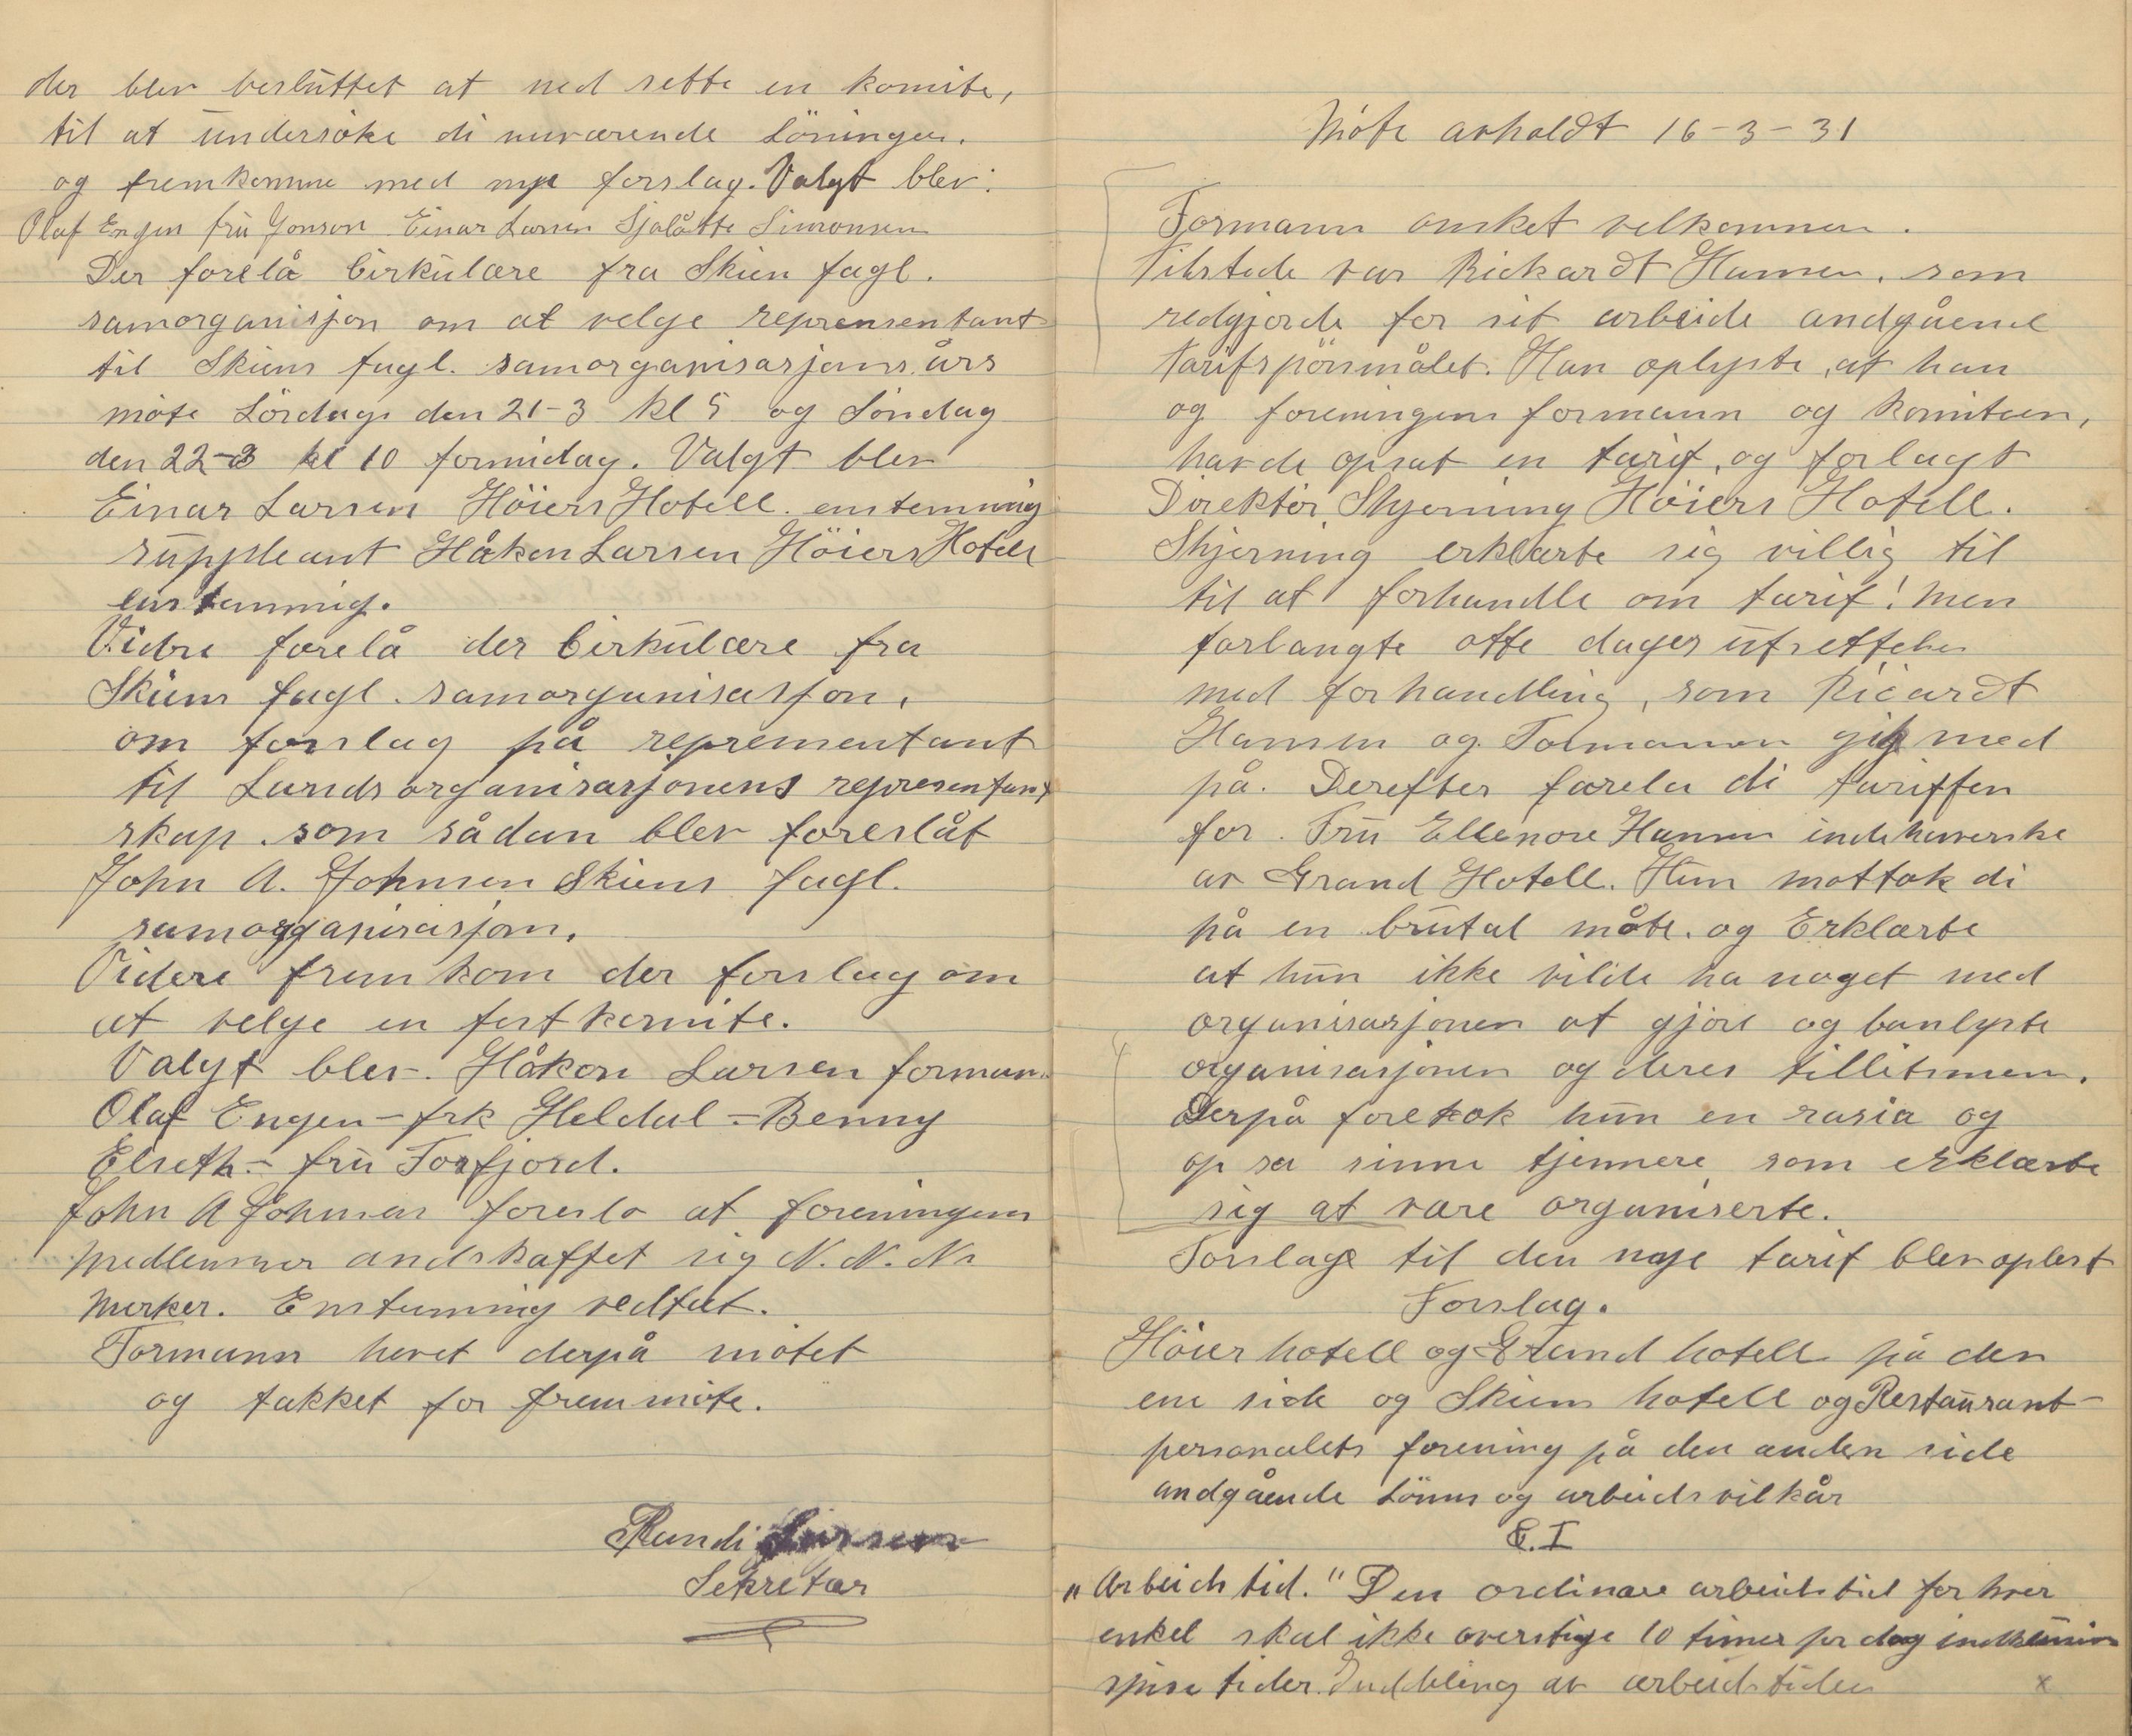 der blev besluttet at ned sette en komite,
til at undersøke di nuværende Löninger.
og fremkomme med nye forslag. Valgt blev:
Olaf Engen fru Jonson Einar Larsen Sjalåtte Simonsen
Der forelå Cirkulære fra Skien fagl.
samorganisjon om at velge reprensentant
til Skiens fagl. samorganisasjons års
möte Lördag den 21-3 kl 5 og Söndag
den 22-3 kl 10 formidag. Valgt blev
Einar Larsen Höiers Hotell. enstemmig
suppleant Håkon Larsen Höiers Hotell
enstemmig.
Vidre forelå der Cirkulære fra
Skiens fagl. samorganisasjon,
om forslag på representant
til Landsorganisasjonens representant
skap. som sådan blev foreslåt
John A. Johnsen Skiens fagl.
samorganisasjon.
Videre frem kom der forslag om
at velge en fest komite.
Valgt blev. Håkon Larsen forman.
Olaf Engen – frk Heldal – Benny
Elseth – fru Torfjord.
John A Johnsen foreslo at foreningens
medlemmer andskaffet sig N. N. N.
merker. Enstemmig vedtat.
Formann hevet derpå mötet
og takket for fremmöte.
Randi Larsen
Sekretær
Möte avholdt 16-3-31
Formann ønsket velkommen.
Tilstede var Rickardt Hansen. som
redgjorde for sit arbeide andgåend
tarifspörsmålet. Han oplyste, at han
og foreningens formann og komiteen,
havde opsat en tarif, og forlagt
Direktör Skjerning Höiers Hotell.
Skjerning erklærte sig villig til
til at forhandle om tarif! men
forlangte otte dages utsettelse
med forhandling, som Ricardt
Hansen og Formannen gik med
på. Derefter forela di tariffen
for. Fru Ellenore Hansen indehaverske
av Grand Hotell. Hun mottok di
på en brutal måte. og Erklærte
at hun ikke vilde ha noget med
organisasjonen at gjöre og banlyste
organisasjonen og deres tillitsmen.
Derpå foretok hun en rasia og
op sa sinne tjennere som erklærte
sig at være organiserte.
Forslage til den nye tarif blev oplest
Forslag.
Höier hotell og Grand hotell på den
ene side og Skiens hotell og Restaurant-
personalets forening på den anden side
andgående Lönns og arbeidsvilkår
§. I
"Arbeids tid." Den ordinære arbeidstid for hver
enkel skal ikke overstige 10 timer per dag indklusiv
spise tider. Inddeling av arbeidstiden x